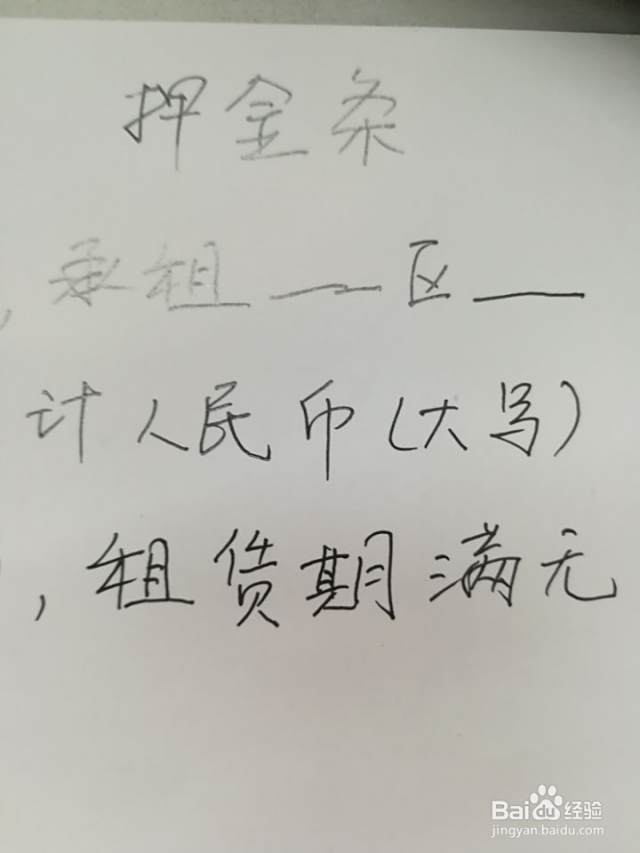 押金条
,承租——区——
计人民币(大写)
,租赁期满无
Baidu经验
jingyan.baidu.com